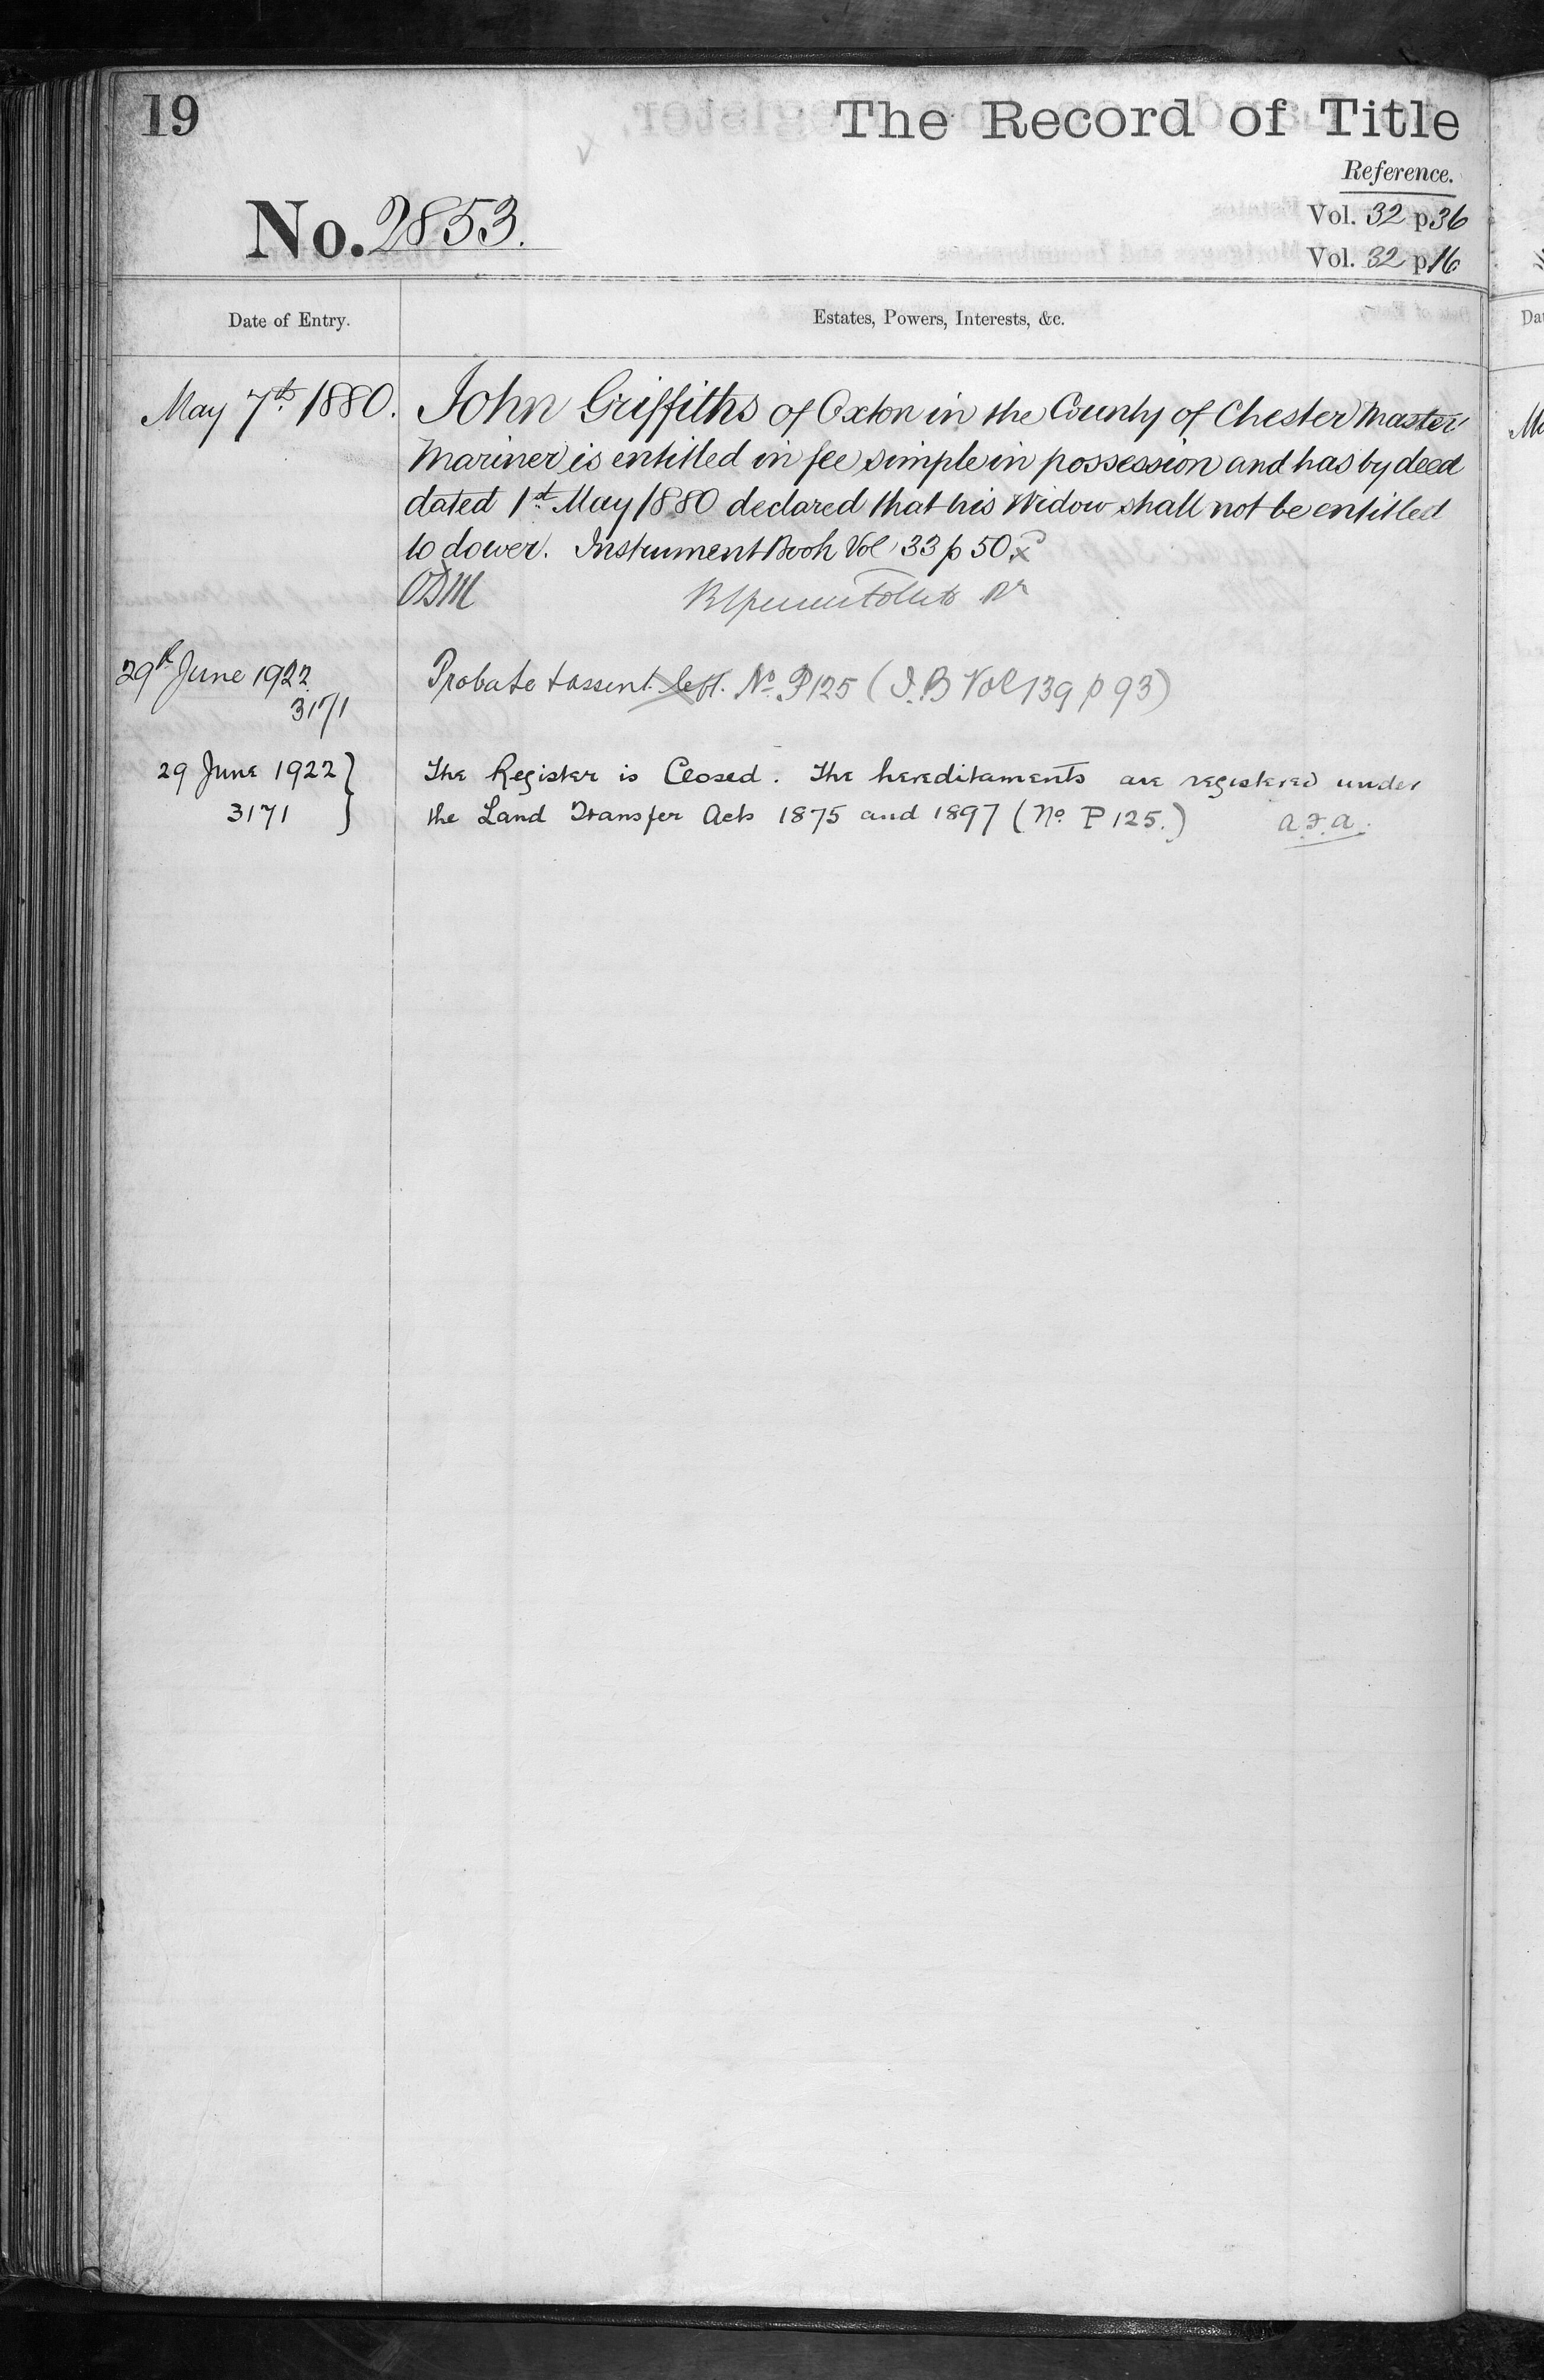 19
The Record of Title
Reference.
No. 2853.
Vol. 32 p 36
Vol. 32 p 16
Date of Entry.
Estates, Powers, Interests, &c.
May 7th. 1880.
John Griffiths of Oxton in the County of Chester Master
Mariner is entitled in fee simple in possession and has by deed
dated 1st. May 1880 declared that his Widow shall not be entitled
to dower. Instrument Book Vol 33 p 50.
29th June 1922
3171
Probate & assent left. No. P125 (I.B Vol 139 p 93)
29 June 1922 }
3171
The Register is Closed. The hereditaments are registered under
the Land Transfer Acts 1875 and 1897 (No. P 125.)
Da